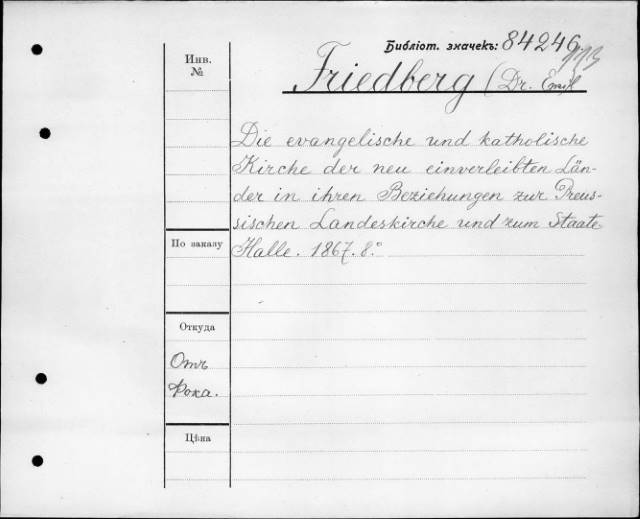 Библіот. значекъ: 84246
Инв.
№
Friedberg (Dr. Emil
Die evangelische und katholische
Kirche der neu einverleibten Län-
der in ihren Beziehungen zur Preus-
sischen Landeskirche und zum Staate
По заказу
Halle. 1867. 8.°
Откуда
Отъ
Роха.
Цѣна